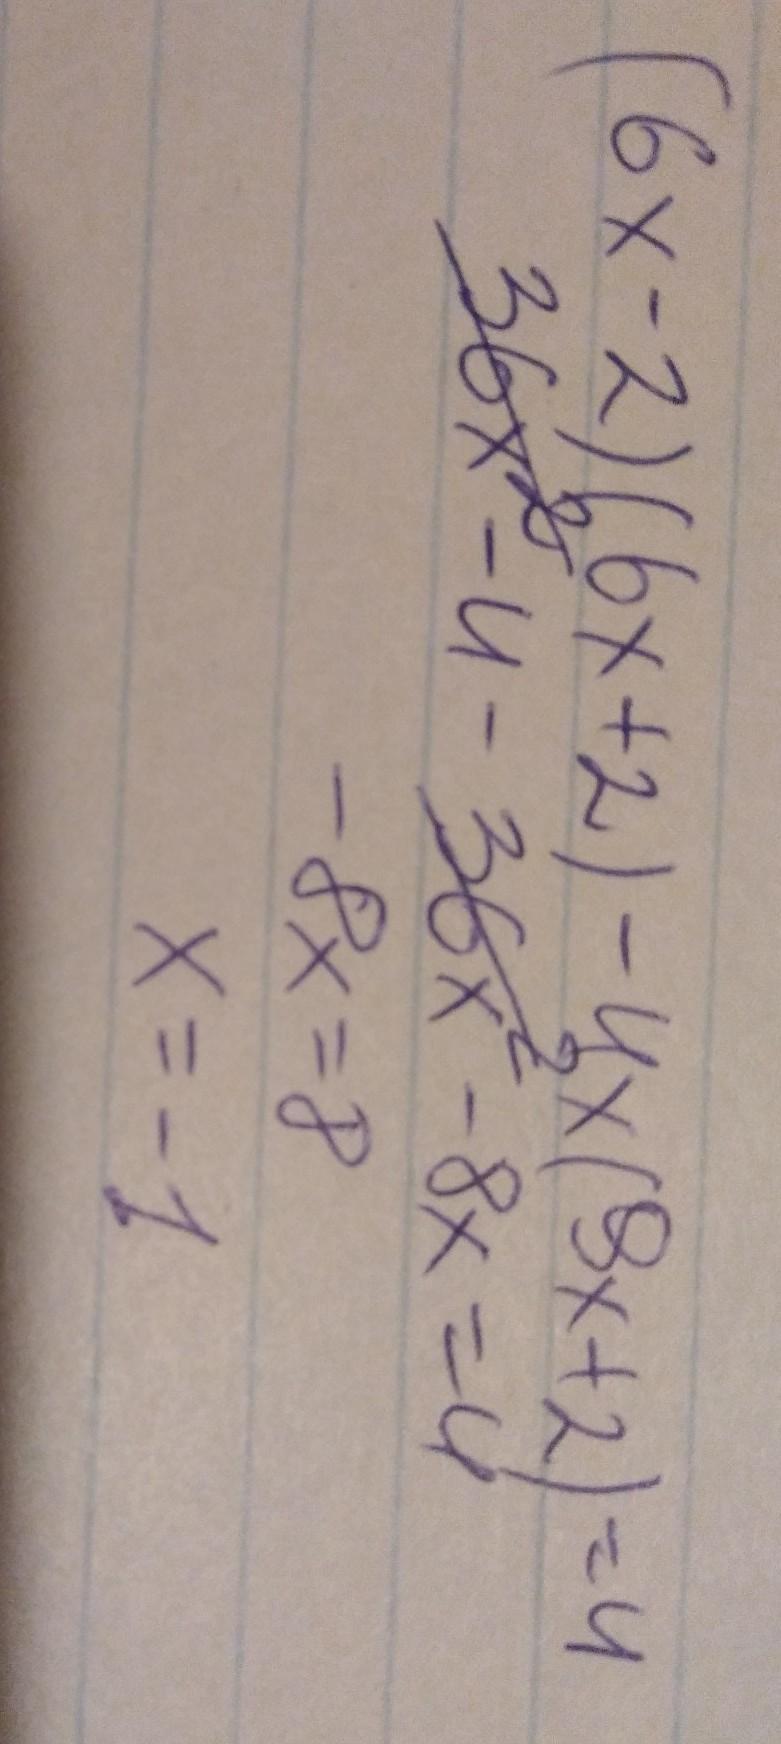 (6x-2)(6x+2)-4x(9x+2)=4
36x²-4-36x²-8x=4
-8x=8
x=-1